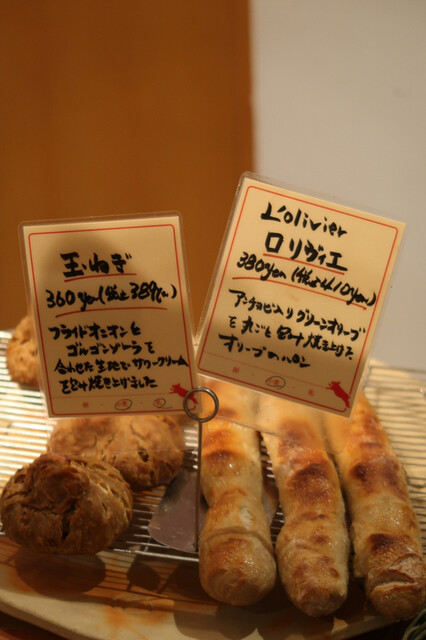 玉ねぎ
360yen(税込389yen)
フライドオニオンと
ゴルゴンゾーラを
合わせた生地でサワークリーム
を包み焼き上げました
L'olivier
ロリヴィエ
380yen(税込410yen)
アンチョビ入りグリーンオリーブ
を丸ごと包み焼き上げた
オリーブのパン